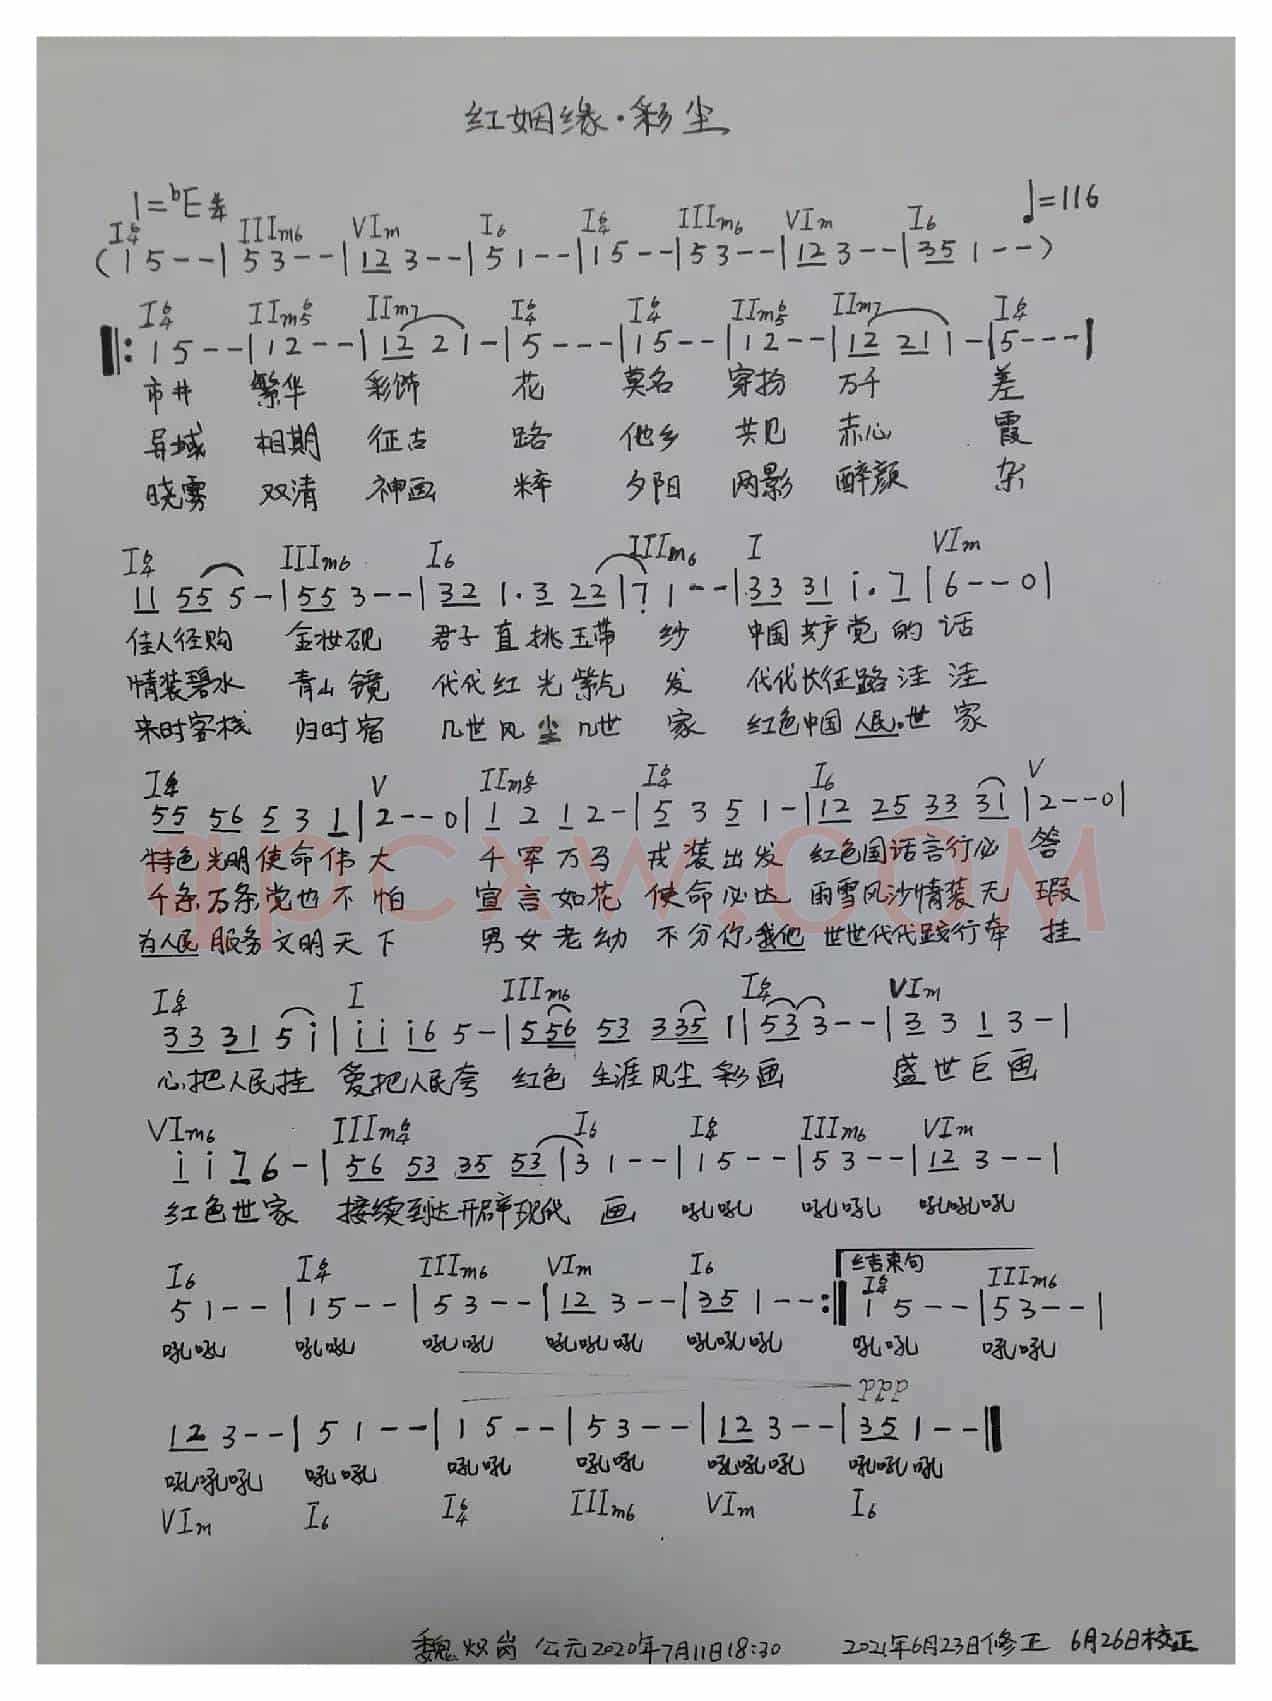 红姻缘·彩尘
1=ᵇE 4/4 ♩=116
I6/4 IIIm6 VIm I6 I6/4 IIIm6 VIm I6
(1 5 - - | 5 3 - - | 12 3 - - | 5 1 - - | 1 5 - - | 5 3 - - | 12 3 - - | 35 1 - - )
I6/4 IIm6/5 IIm7 I6/4 I6/4 IIm6/5 IIm7 I6/4
‖: 1 5 - - | 1 2 - - | 12 2 1 - | 5 - - - | 1 5 - - | 1 2 - - | 12 21 1 - | 5 - - - |
市井 繁华 彩饰 花 莫名 穿扮 万千 差
异域 相期 征古 路 他乡 共见 赤心 霞
晓雾 双清 神画 粹 夕阳 两影 醉颜 杂
I6/4 IIIm6 I6 IIIm6 I VIm
11 55 5 - | 55 3 - - | 32 1. 3 22 | 7 1 - - | 33 31 i. 7 | 6 - - 0 |
佳人径购 金妆砚 君子直挑玉带 纱 中国共产党的话
情装碧水 青山镜 代代红光紫气 发 代代长征路洼洼
来时客栈 归时宿 几世风尘几世 家 红色中国人民世家
I6/4 V IIm6/5 I6/4 I6 V
55 56 5 3 1 | 2 - - 0 | 1 2 1 2 - | 5 3 5 1 - | 12 25 33 31 | 2 - - 0 |
特色光明使命伟大 千军万马 戎装出发 红色国话言行必 答
千条万条党也不怕 宣言如花 使命必达 雨雪风沙情装无 瑕
为人民服务文明天下 男女老幼 不分你,我他 世世代代践行牵 挂
I6/4 I IIIm6 I6/4 VIm
33 31 5 i | i i i6 5 - | 556 53 335 1 | 53 3 - - | 3 3 1 3 - |
心把人民挂 爱把人民夸 红色 生涯风尘 彩画 盛世巨画
VIm6 IIIm6/4 I6 I6/4 IIIm6 VIm
i i 7 6 - | 56 53 35 53 | 3 1 - - | 1 5 - - | 5 3 - - | 12 3 - - |
红色世家 接续到达开辟现代 画 吼吼 吼吼 吼吼吼
I6 I6/4 IIIm6 VIm I6 结束句 I6/4 IIIm6
5 1 - - | 1 5 - - | 5 3 - - | 12 3 - - | 35 1 - - :‖ 1 5 - - | 5 3 - - |
吼吼 吼吼 吼吼 吼吼吼 吼吼吼 吼吼 吼吼
ppp
12 3 - - | 5 1 - - | 1 5 - - | 5 3 - - | 12 3 - - | 35 1 - - ‖
吼吼吼 吼吼 吼吼 吼吼 吼吼吼 吼吼吼
VIm I6 I6/4 IIIm6 VIm I6
魏炽岗 公元2020年7月11日18:30 2021年6月23日修正 6月26日校正
qpcxw.com